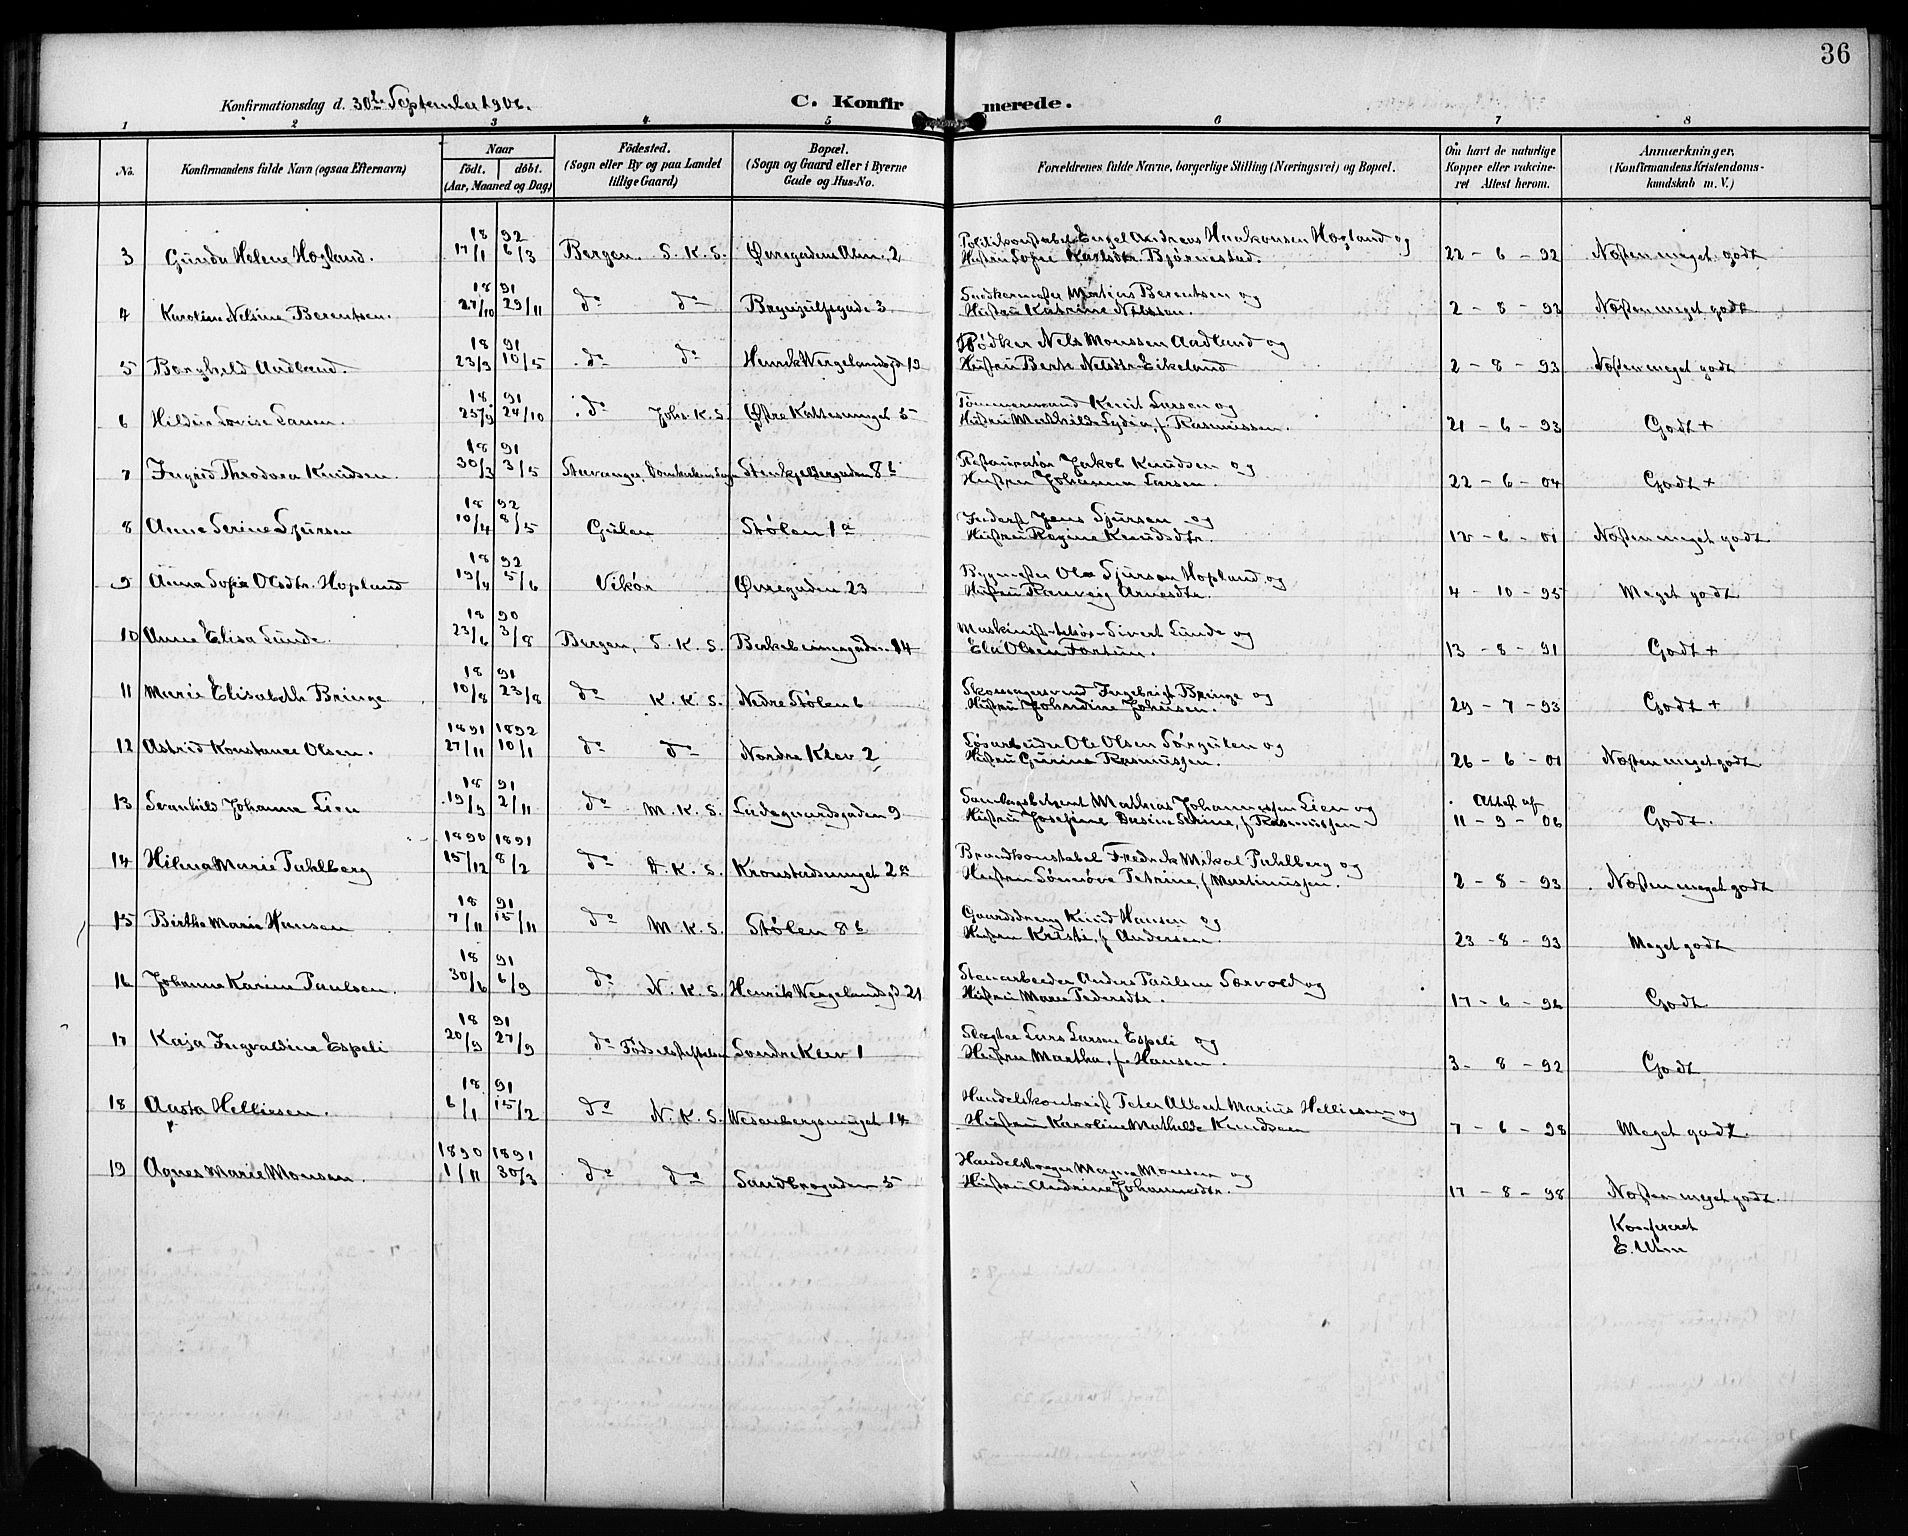 36
Konfirmationsdag d. 30te September 1906.
C. Konfirmerede.
1 2 3 4 5 6 7 8
No. Konfirmandens fulde Navn (ogsaa Efternavn) Naar födt. döbt. (Aar, Maaned og Dag) Födested. (Sogn eller By og paa Landet tillige Gaard) Bopæl. (Sogn og Gaard eller i Byerne Gade og Hus-No. Forældrenes fulde Navne, borgerlige Stilling (Næringsvei) og Bopæl. Om havt de naturlige Kopper eller vakcineret Attest herom. Anmærkninger, (Konfirmandens Kristendomskundskab m. V.)
18 92
3 Gunda Helene Hogland. 17/1 6/3 Bergen S. K. S. Øvregadens Alm. 2 Politikonstabel Engel Andreas Haakonsen Hogland og
Hustru Sofie Karlsdtr. Bjørnestad. 22 - 6 - 92 Næsten meget godt
18 91
4 Karoline Nelsine Berentsen. 27/10 29/11 do do Brynjulfsgade 3 Snedkermester Martins Berentsen og
Hustru Katrine Nilssen. 2 - 8 - 93 Næsten meget godt
18 91
5 Borghild Aadland. 23/3 10/5 do do Henrik Wergelandsgd 19 Bødker Nels Monssen Aadland og
Hustru Berte Nelsdtr Eikeland 2 - 8 - 93 Næsten meget godt
18 91
6 Hildur Lovise Larsen. 25/9 24/10 do Joh. K. S. Østre Kattesmuget 5 Tømmermand Knut Larsen og
Hustru Mathilde Lydia, f. Rasmussen. 21 - 6 - 93 Godt +
18 91
7 Ingrid Theodora Knudsen. 30/3 3/5 Stavanger, Domkirkens Sogn Stenkjellergaden 8b Restauratør Jakob Knudsen og
Hustru Johanna Larsen. 22 - 6 - 04 Godt +
18 92
8 Anne Serine Sjursen 10/4 8/5 Gulen Stølen 1a Jens Sjursen og
Hustru Regine Knudsdtr. 12 - 6 - 01 Næsten meget godt
18 92
9 Anna Sofie Olsdtr. Hopland 19/4 5/6 Vikør Øvregaden 23 Bygmester Ole Sjursen Hopland og
Hustru Ranveig Arnesdtr. 4 - 10 - 95 Meget godt
18 90
10 Anne Elisa Lunde 23/6 3/8 Bergen, S. K. S. Birkebeinergaden 14 Sivert Lunde og
Ela Olsen Fortun. 13 - 8 - 91 Godt +
18 91
11 Marie Elisabeth Bringe 10/8 23/8 do K. K. S. Nedre Stølen 6 Skomagersvend Ingebrigt Bringe og
Hustru Johndine Johnsen. 29 - 7 - 93 Godt +
1891 1892
12 Astrid Konstance Olsen. 27/11 10/1 do do Nordre Klev 2 Løsarbeider Ole Olsen Sørgulen og
Hustru Gurine Rasmussen. 26 - 6 - 01 Næsten meget godt
18 91
13 Svanhild Johanne Lien 19/9 2/11 do M. K. S. Ladegaardsgaden 9 Mathias Johannessen Lien og
Hustru Josefine Dasine Serine, f. Rasmussen Attest af
11 - 9 - 06 Godt.
1890 1891
14 Hilma Marie Puhlberg 15/12 8/2 do D. K. S. Kronstadsmuget 2a Brandkonstabel Fredrik Mikal Puhlberg og
Hustru Sønnøve Petrine, f. Martinussen. 2 - 8 - 93 Næsten meget godt
18 91
15 Birthe Marie Hansen 7/11 15/11 do M. K. S. Stølen 8b Gaardsdreng Knud Hansen og
Hustru Kristi, f. Andersen. 23 - 8 - 93 Meget godt
18 91
16 Johanne Karine Paulsen. 30/6 6/9 do N. K. S. Henrik Wergelandsgd 21 Stenarbeider Anders Paulsen Sørvold og
Hustru Marie Pedersdtr. 17 - 6 - 96 Godt
18 91
17 Kaja Ingvaldine Espeli 20/9 27/9 do Fødselsstiftelsen Søndre Klev 1 Slagter Lars Larsen Espeli og
Hustru Martha, f. Hansen. 3 - 8 - 92 Godt
18 91
18 Aasta Helliesen. 6/1 15/2 do N. K. S. Wesenbergsmuget 14 Handelskontorist Peter Albert Marius Helliesen og
Hustru Karoline Mathilde Knudsen 7 - 6 - 98 Meget godt.
1890 1891
19 Agnes Marie Monsen. 1/11 30/3 do do Sandbrogaden 5 Handelsborger Magne Monsen og
Hustru Andrine Johannesdtr. 17 - 8 - 98 Næsten meget godt.
Konfereret
E. Ulm